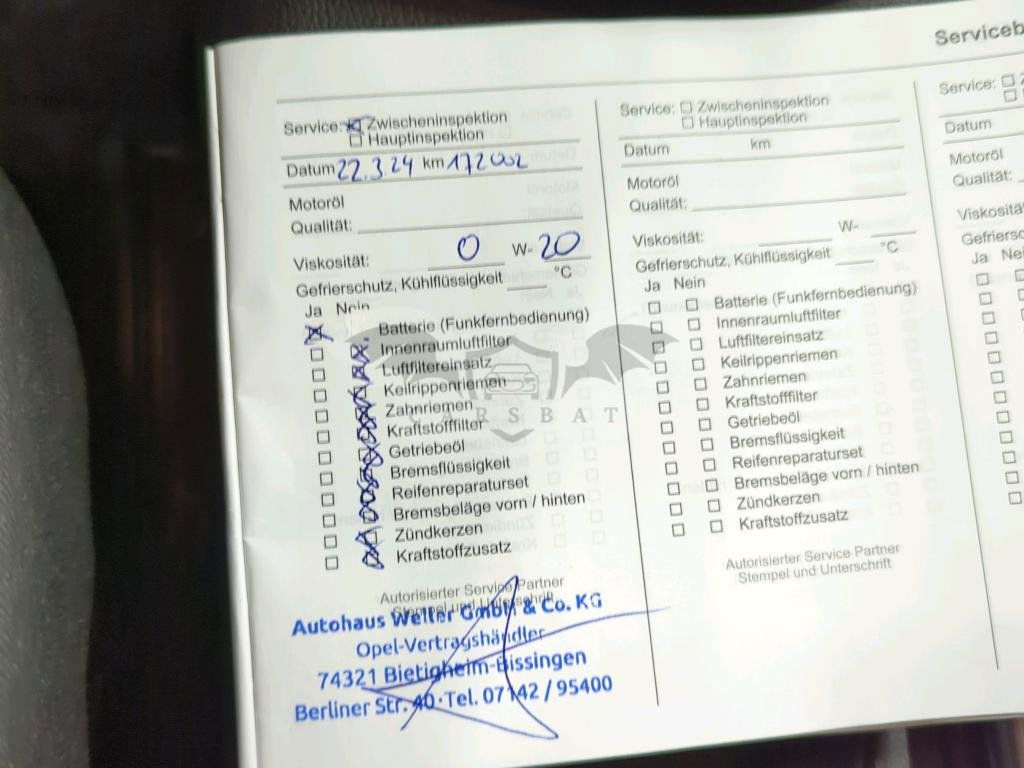 Serviceb
Service: Zwischeninspektion
Hauptinspektion
Datum 22.3.24 km 172002
Motoröl
Qualität:
Viskosität: 0 W- 20
Gefrierschutz, Kühlflüssigkeit °C
Ja Nein
Batterie (Funkfernbedienung)
Innenraumluftfilter
Luftfiltereinsatz
Keilrippenriemen
Zahnriemen
Kraftstofffilter
Getriebeöl
Bremsflüssigkeit
Reifenreparaturset
Bremsbeläge vorn / hinten
Zündkerzen
Kraftstoffzusatz
Autorisierter Service Partner
Stempel und Unterschrift
Autohaus Weller GmbH & Co. KG
Opel-Vertragshändler
74321 Bietigheim-Bissingen
Berliner Str. 40·Tel. 07142 / 95400
Service: Zwischeninspektion
Hauptinspektion
Datum km
Motoröl
Qualität:
Viskosität: W-
Gefrierschutz, Kühlflüssigkeit °C
Ja Nein
Batterie (Funkfernbedienung)
Innenraumluftfilter
Luftfiltereinsatz
Keilrippenriemen
Zahnriemen
Kraftstofffilter
Getriebeöl
Bremsflüssigkeit
Reifenreparaturset
Bremsbeläge vorn / hinten
Zündkerzen
Kraftstoffzusatz
Autorisierter Service Partner
Stempel und Unterschrift
Service: Z
Datum
Motoröl
Qualität:
Viskosität:
Gefriersc
Ja Nei
CARSBAT